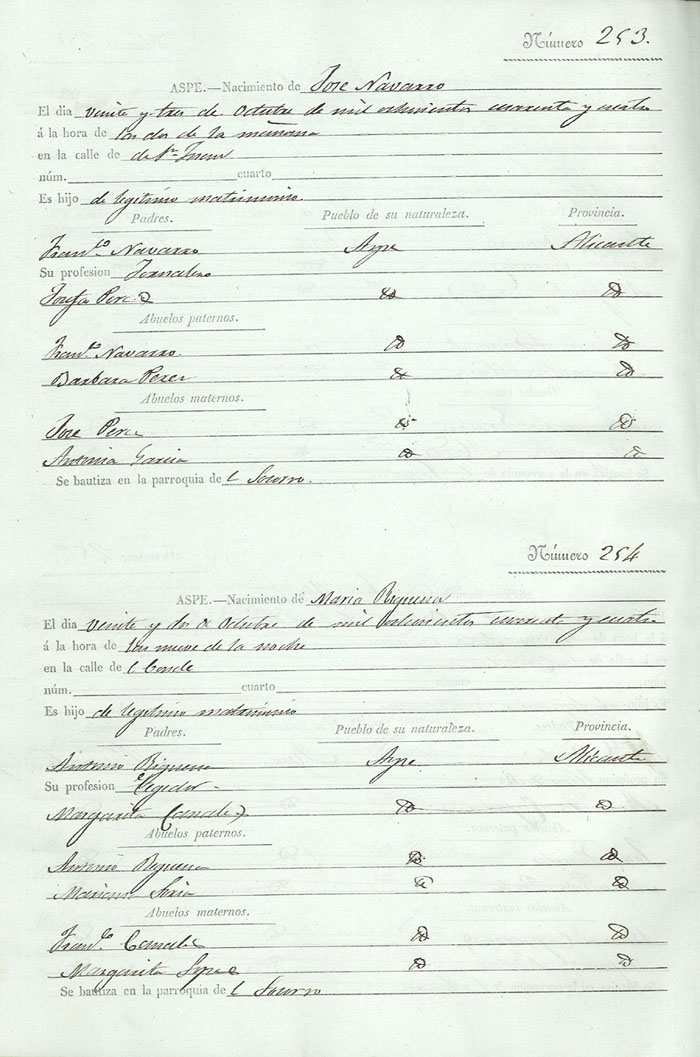 Número 253.
ASPE.—Nacimiento de Jose Navarro
El dia veinte y tres de Octubre de mil ochocientos cuarenta y cuatro
á la hora de las dos de la mañana
en la calle de de Sn. Juan
núm. cuarto
Es hijo de legitimo matrimonio.
Padres. Pueblo de su naturaleza. Provincia.
Franco. Navarro Aspe Alicante
Su profesion Jornalero
Josefa Perez
Abuelos paternos.
Franco. Navarro
Barbara Perez
Abuelos maternos.
Jose Perez
Antonia Garcia
Se bautiza en la parroquia de l Socorro.
Número 254
ASPE.—Nacimiento de Maria
El dia veinte y dos de Octubre de mil ochocientos cuarenta y cuatro
á la hora de las nueve de la noche
en la calle de l Conde
núm. cuarto
Es hijo de legitimo matrimonio
Padres. Pueblo de su naturaleza. Provincia.
Antonio Aspe Alicante
Su profesion Tegedor
Margarita
Abuelos paternos.
Antonio
Soria
Abuelos maternos.
Franco.
Margarita
Se bautiza en la parroquia de l Socorro